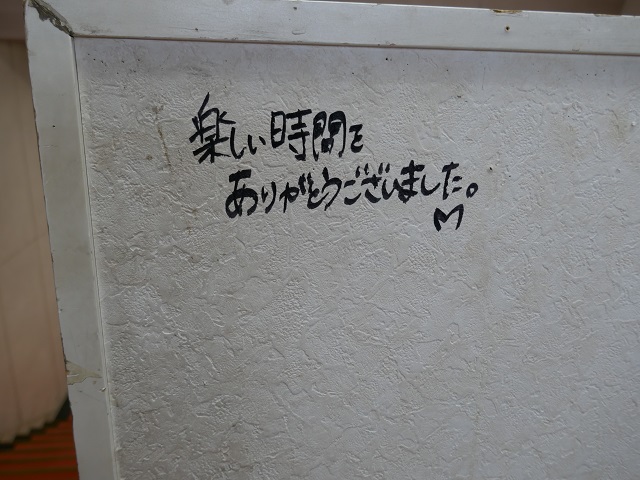 楽しい時間を
ありがとうございました。
M